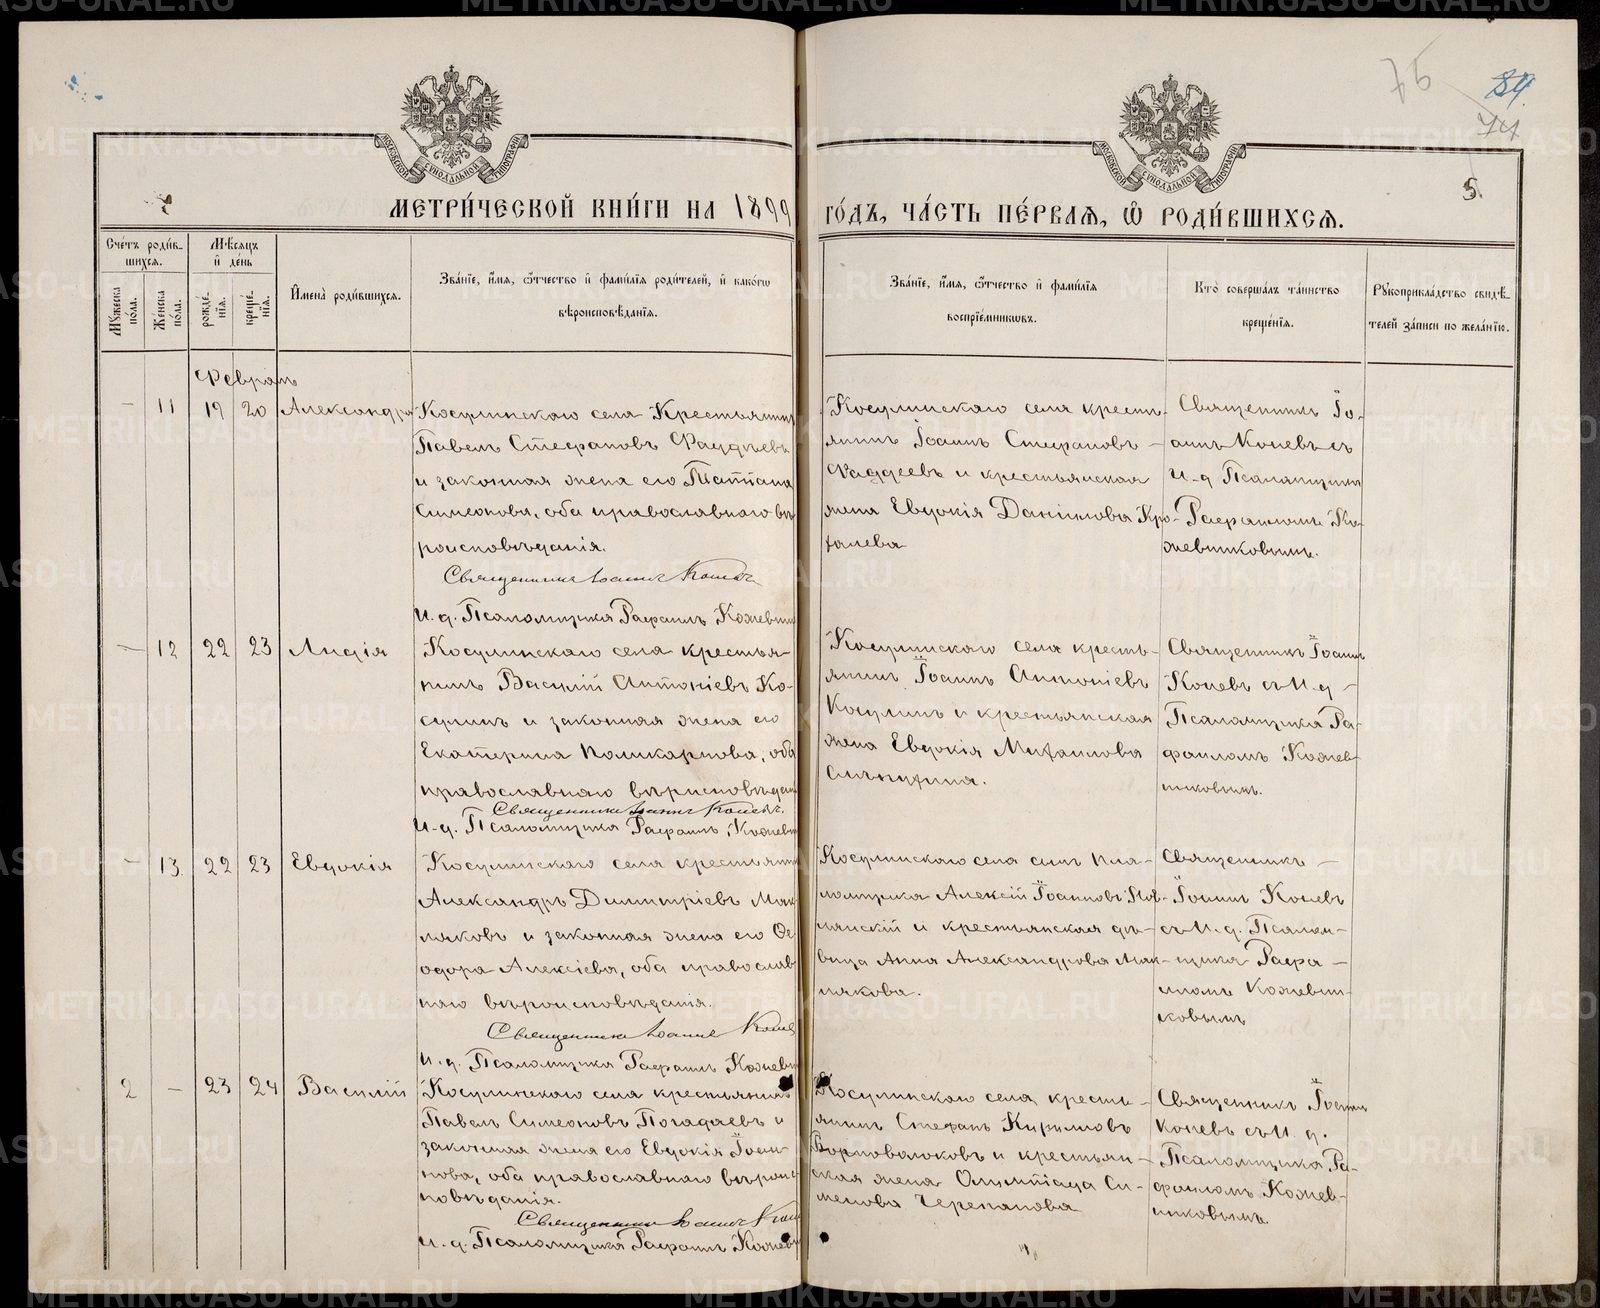 МЕТРИ́ЧЕСКОЙ КНИ́ГИ НА 1899
ГО́ДЪ, ЧА́СТЬ ПЕ́РВАѦ, Ѽ РОДИ́ВШИХСѦ.
84
5.
Сче́тъ роди́в-
шихсѧ.
Мѣ́сѧцъ
и҆ де́нь
Мꙋ́жеска по́ла.
Же́нска по́ла.
рожде́-
нїѧ.
креще́-
нїѧ.
И҆мена̀ роди́вшихсѧ.
Зва́нїе, и҆́мѧ, ѻ҆́тчество и҆ фами́лїѧ роди́телей, и҆ како́гѡ
вѣроисповѣ́данїѧ.
Зва́нїе, и҆́мѧ, ѻ҆́тчество и҆ фами́лїѧ
воспрїе́мникѡвъ.
Кто̀ соверша́лъ та́инство
креще́нїѧ.
Рꙋкоприкла́дство свидѣ́-
телей за́писи по жела́нїю.
Февраль
— 11 19 20 Александра
Косулинскаго села Крестьянинъ
Павелъ Стефановъ Фаддѣевъ
и законная жена его Татіана
Симеонова, оба православнаго вѣ
роисповѣданія.
Священникъ Іоаннъ Коневъ
И. д. Псаломщика Рафаилъ Кожевник
Косулинскаго села кресть-
янинъ Іоаннъ Стефановъ —
Фаддеевъ и крестьянская
жена Евдокія Даніилова
Священникъ Іо-
аннъ Коневъ съ
И. д Псаломщика
Рафаиломъ Ко-
жевниковымъ.
— 12 22 23 Лидія
Косулинскаго села крестья-
нинъ Василій Антоніевъ Ко-
сулинъ и законная жена его
Екатерина Поликарпова, оба
православнаго вѣроисповѣдан
Священникъ Іоаннъ Коневъ.
И. д. Псаломщика Рафаилъ Кожевн
Косулинскаго села кресть-
янинъ Іоаннъ Антоніевъ
Косулинъ и крестьянская
жена Евдокія Михаилова
Священникъ Іоаннъ
Коневъ съ И. д —
Псаломщика Ра-
фаиломъ Кожев-
никовымъ.
— 13. 22 23 Евдокія
Косулинскаго села крестьянин
Александръ Димитріевъ Мак
няковъ и законная жена его Ѳе
одора Алексіева, оба православ
наго вѣроисповѣданія.
Священникъ Іоаннъ Коне
И. д. Псаломщика Рафаилъ Кожевн
Косулинскаго села сынъ Пса-
ломщика Алексій Іоанновъ
и крестьянская дѣ-
вица Анна Александрова Мак-
някова.
Священникъ —
Іоаннъ Коневъ
съ И. д. Псалом-
щика Рафа —
иломъ Кожевни-
ковымъ
2 — 23 24 Василій
Косулинскаго села крестьянинъ
Павелъ Симеоновъ Погадаевъ и
законная жена его Евдокія Іоан-
нова, оба православнаго вѣроис
повѣданія.
Священникъ Іоаннъ Коне
И. д. Псаломщика Рафаилъ Кожевн
Косулинскаго села кресть —
янинъ Стефанъ Кириловъ
Ворповолоковъ и крестьян —
ская жена Олимпіада Си-
меонова Черепанова
Священникъ Іоаннъ
Коневъ съ И. д.
Псаломщика Ра-
фаиломъ Кожев-
никовымъ.
METRIKI.GASO-URAL.RU